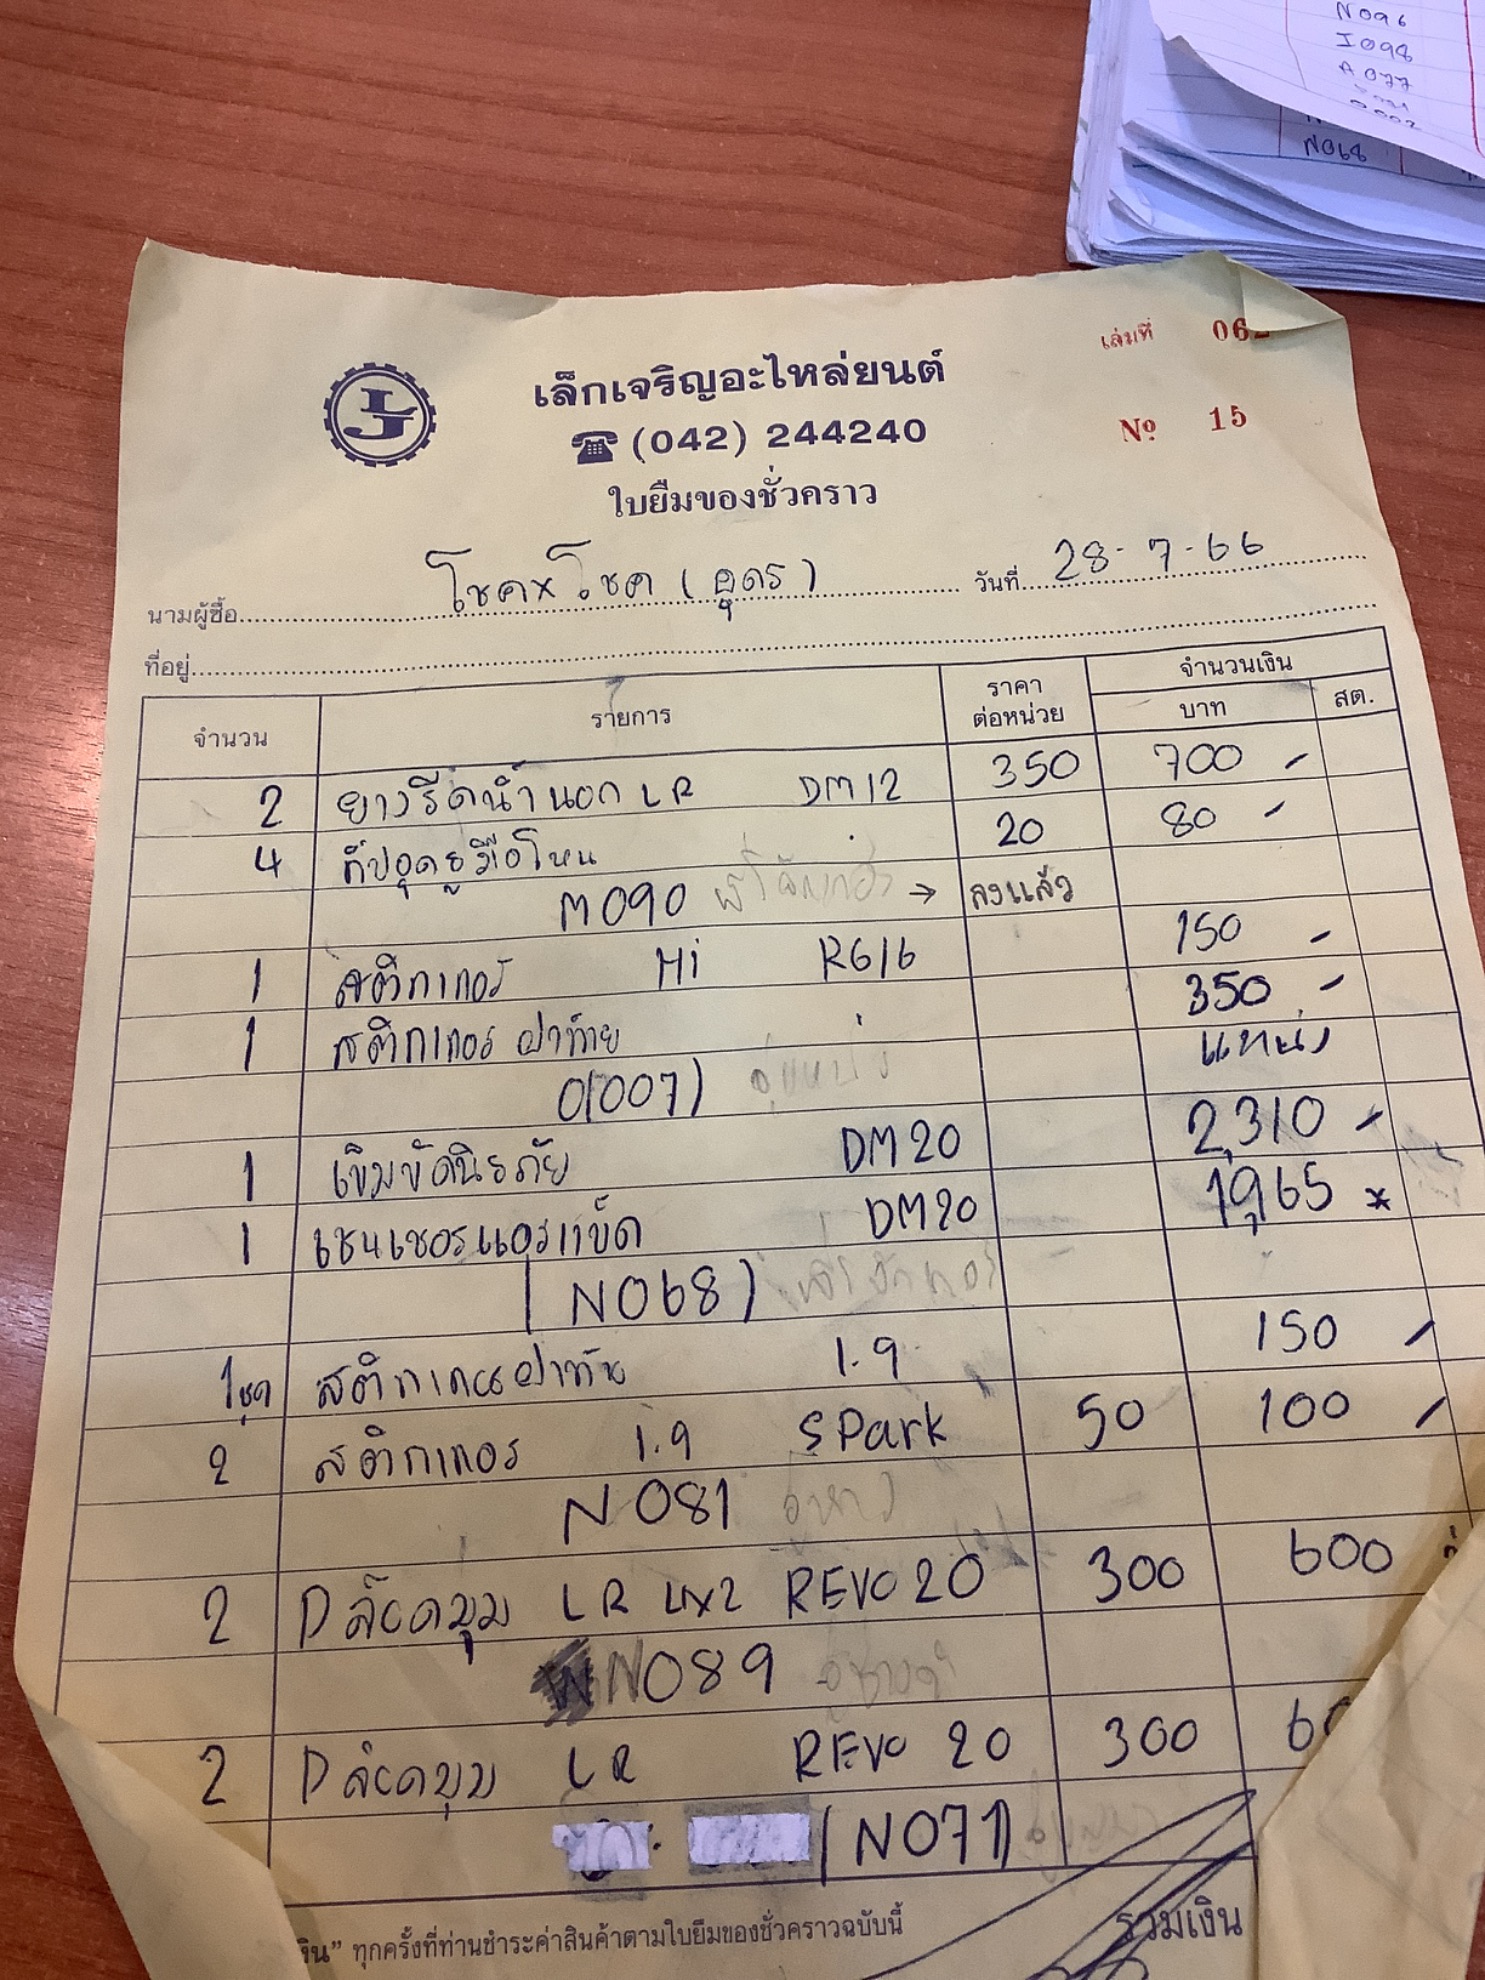 N096
I098
A077
N068
เล่มที่ 06
เล็กเจริญอะไหล่ยนต์
LJ
☎ (042) 244240
Nº 15
ใบยืมของชั่วคราว
นามผู้ซื้อ โชคxโชค (อุดร) วันที่ 28-7-66
ที่อยู่
จำนวน รายการ ราคาต่อหน่วย จำนวนเงิน
บาท สต.
2 ยางรีดน้ำนอก LR DM12 350 700 -
4 กิ๊ปอุดยูมือโหน 20 80 -
M090 → ลงแล้ว
1 สติกเกอร์ Hi R616 150 -
1 สติกเกอร์ฝาท้าย 350 -
0(007) แหนบ
1 เข็มขัดนิรภัย DM20 2,310 -
1 เซนเซอร์แอร์แบ็ค DM20 1,965 *
(N068)
1ชุด สติกเกอร์ฝาท้าย 1.9 150 -
2 สติกเกอร์ 1.9 SPark 50 100 -
N081
2 Dล๊อคมุม LR 4x2 REVO 20 300 600
N089
2 Dล๊อคมุม LR REVO 20 300 60
(N071)
งิน” ทุกครั้งที่ท่านชำระค่าสินค้าตามใบยืมของชั่วคราวฉบับนี้ รวมเงิน